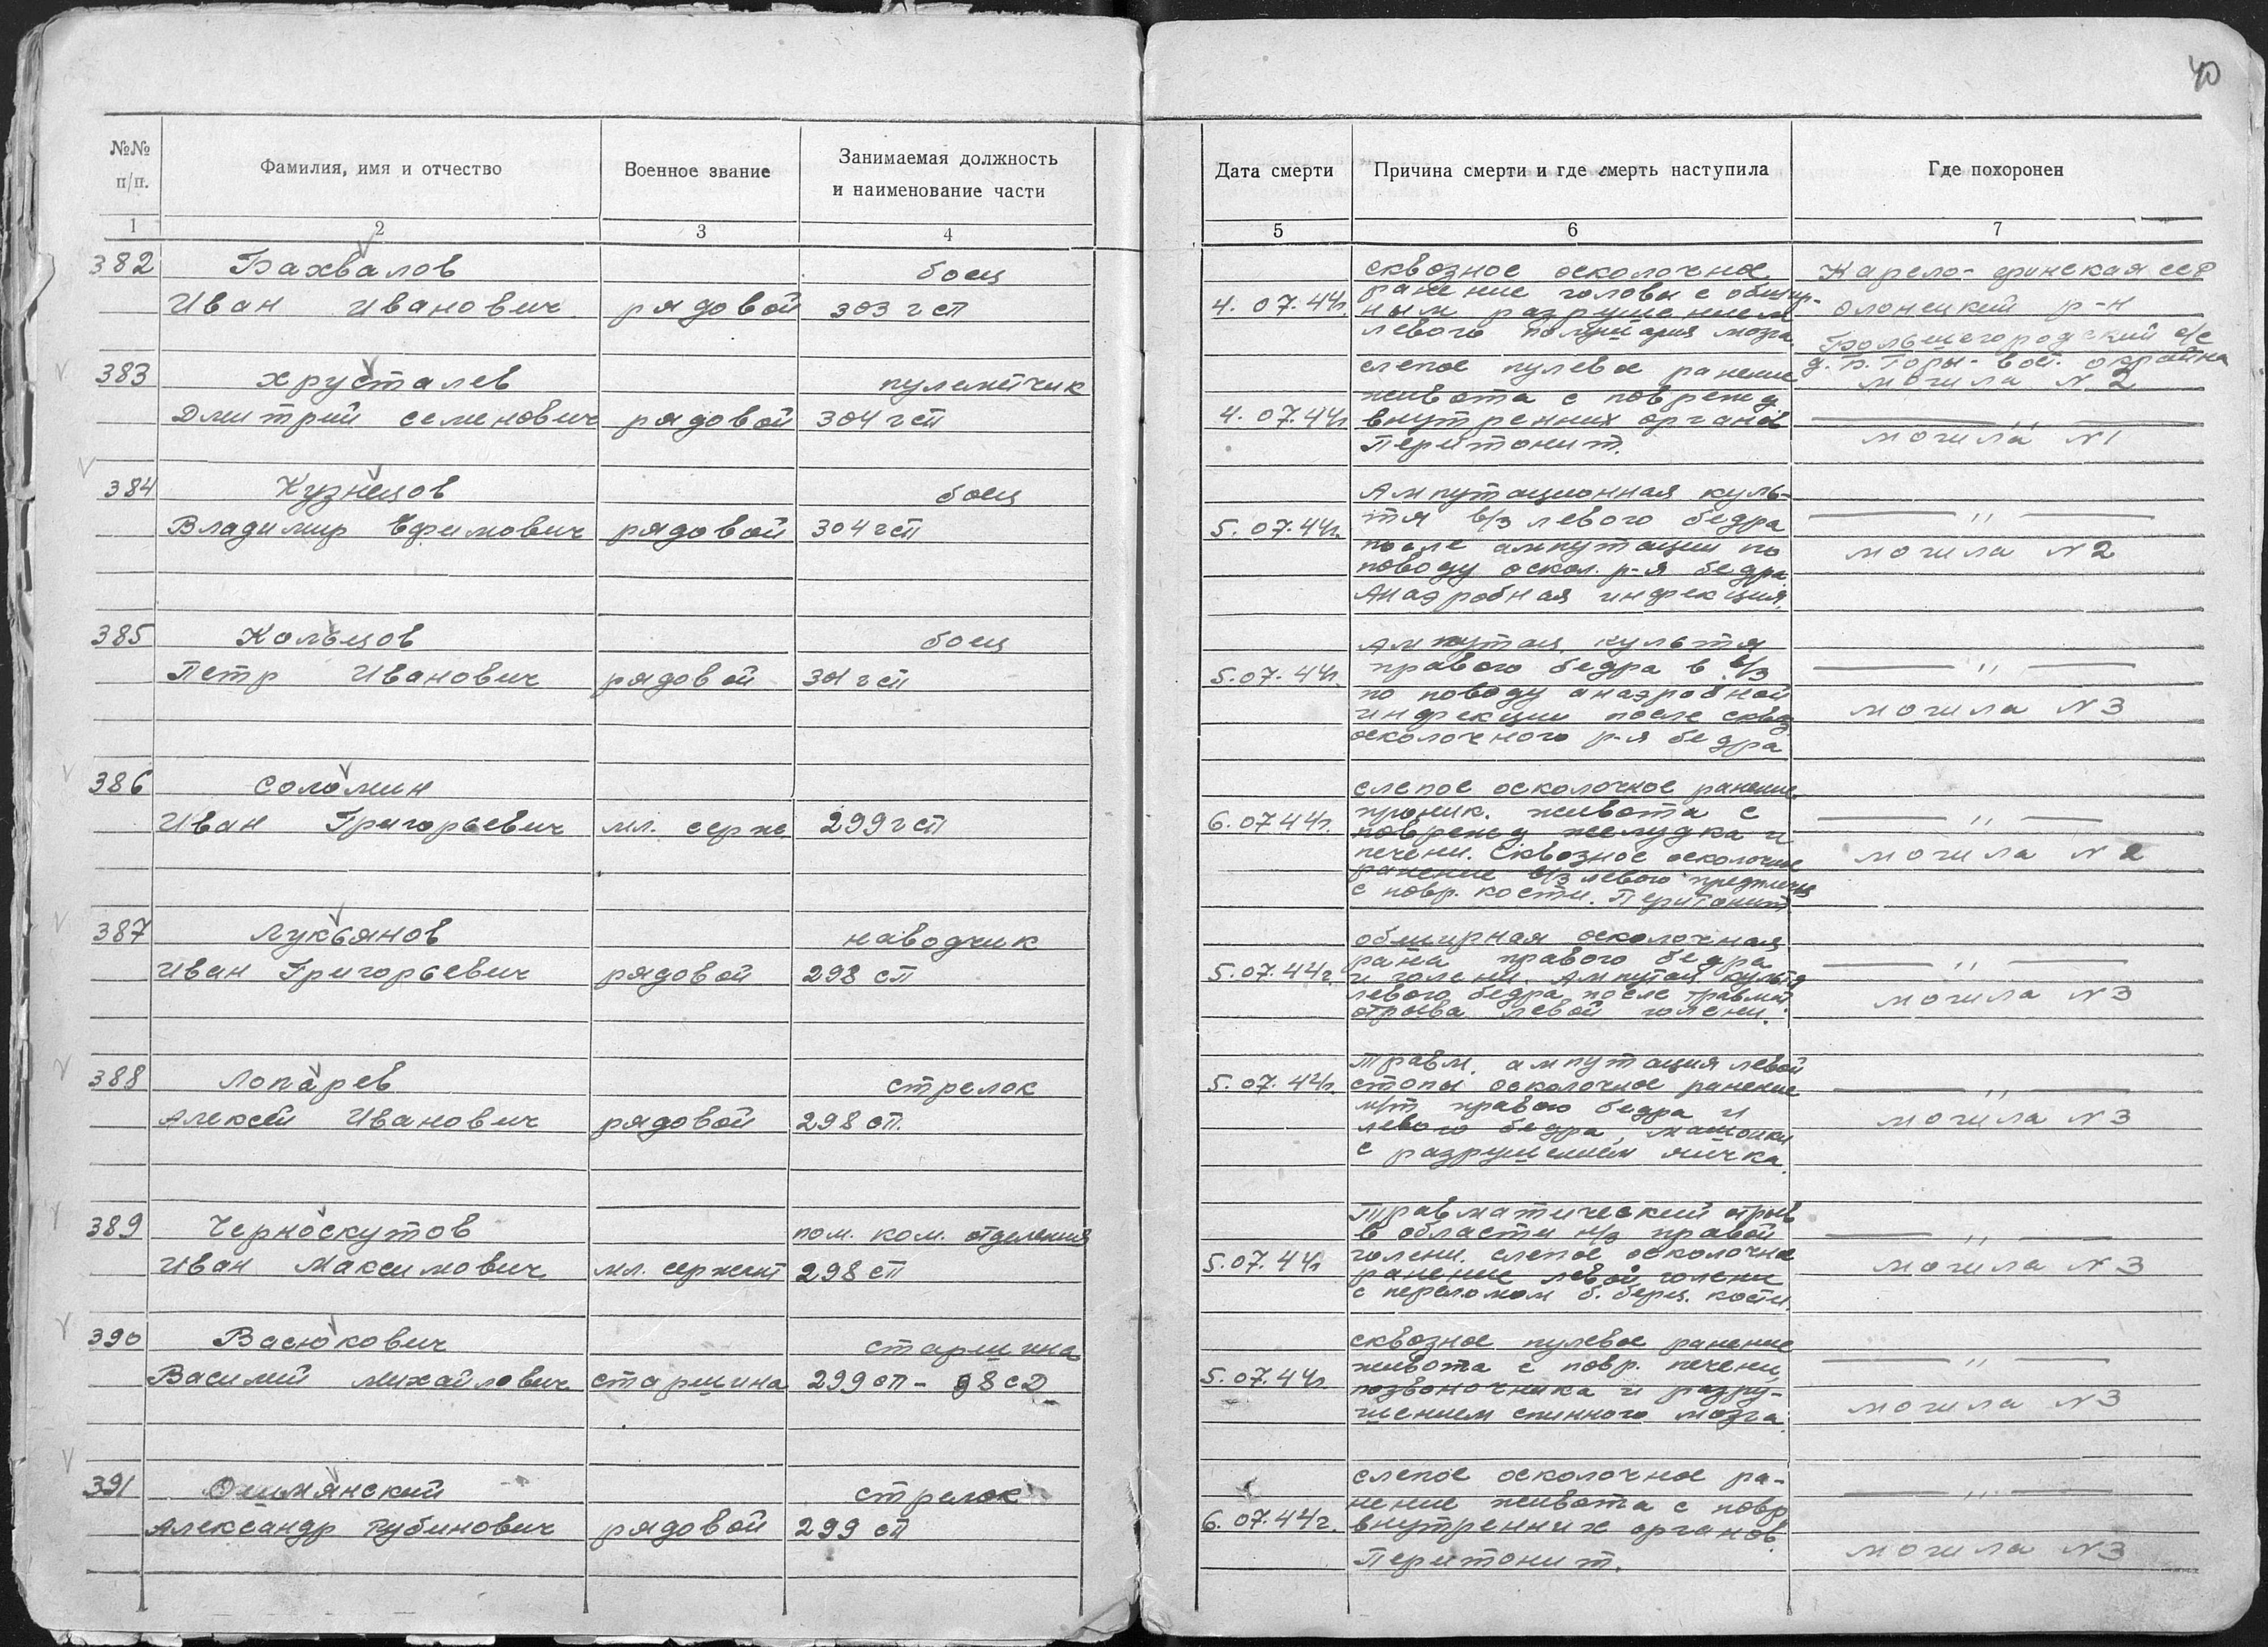 40
№№ п/п.
Фамилия, имя и отчество
Военное звание
Занимаемая должность
и наименование части
Дата смерти
Причина смерти и где смерть наступила
Где похоронен
1 2 3 4 5 6 7
382 Бахвалов боец
Иван Иванович рядовой 303 гсп
4.07.44г.
сквозное осколочное
ранение головы с обшир-
ным разрушением
левого полушария мозга.
Карело-финская ССР
Олонецкий р-н
Большегородский с/с
д. Б. Горы - вост. окраина
могила N 2
383 Хрусталев пулеметчик
Дмитрий Семенович рядовой 304 гсп
4.07.44г.
слепое пулевое ранение
живота с поврежд
внутренних органов
Перитонит.
— " —
могила N 1
384 Кузнецов боец
Владимир Ефимович рядовой 304 гсп
5.07.44г.
Ампутационная куль-
тя в/з левого бедра
после ампутации по
поводу оскол. р-я бедра
Анаэробная инфекция.
— " —
могила N 2
385 Кольцов боец
Петр Иванович рядовой 301 гсп
5.07.44г.
Ампутац. культя
правого бедра в в/з
по поводу анаэробной
инфекции после сквоз
осколочного р-я бедра
— " —
могила N 3
386 Соломин
Иван Григорьевич мл. серж 299 гсп
6.07.44г.
слепое осколочное ранение
проник. живота с
поврежд желудка и
печени. Сквозное осколочное
ранение в/з левого предплечья
с повр. кости. Перитонит.
— " —
могила N 2
387 Лукьянов наводчик
Иван Григорьевич рядовой 298 сп
5.07.44г.
обширная осколочная
рана правого бедра
и голени. Ампутац. культя
левого бедра после травмат
отрыва левой голени.
— " —
могила N 3
388 Лопарев стрелок
Алексей Иванович рядовой 298 сп.
5.07.44г.
Травм. ампутация левой
стопы осколочное ранение
м/т правого бедра и
левого бедра, мошонки
с разрушением яичка.
— " —
могила N 3
389 Черноскутов пом. ком. отделения
Иван Максимович мл. сержант 298 сп
5.07.44г
Травматический отрыв
в области н/з правой
голени. слепое осколочное
ранение левой голени
с переломом б. берц. кости.
— " —
могила N 3
390 Васюкович старшина
Василий Михайлович старшина 299 сп - 98 сд
5.07.44г.
сквозное пулевое ранение
живота с повр. печени,
позвоночника и разру-
шением спинного мозга.
— " —
могила N 3
391 Ошмянский стрелок
Александр Рубинович рядовой 299 сп
6.07.44г.
слепое осколочное ра-
нение живота с повр
внутренних органов.
Перитонит.
— " —
могила N 3